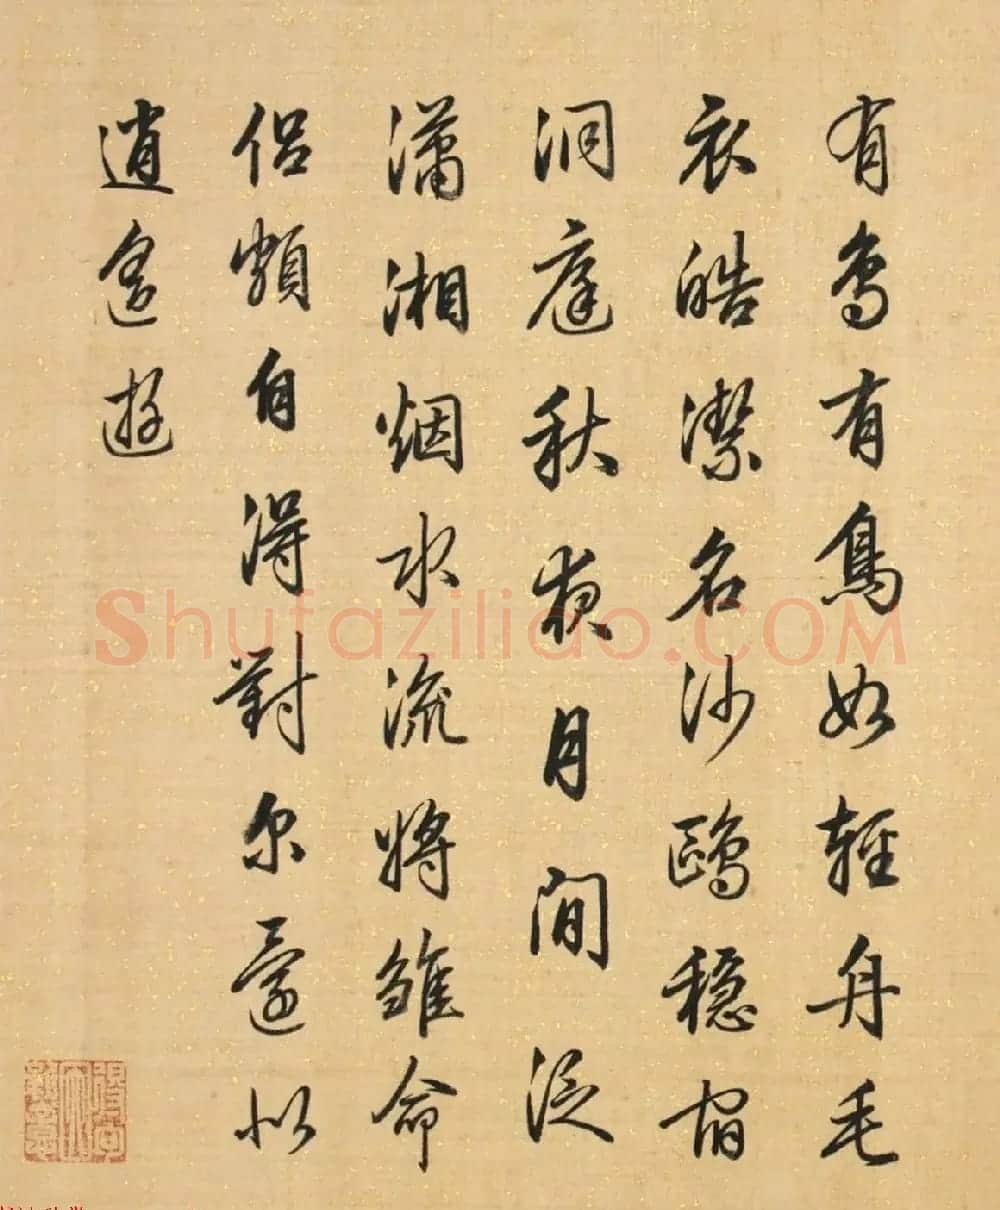 有鳥有鳥如輕舟毛
衣皓潔名沙鷗穩宿
洞庭秋夜月閒泛
瀟湘烟水流將雛命
侣頻自得對尔還以
逍遙遊
Shufaziliao.COM